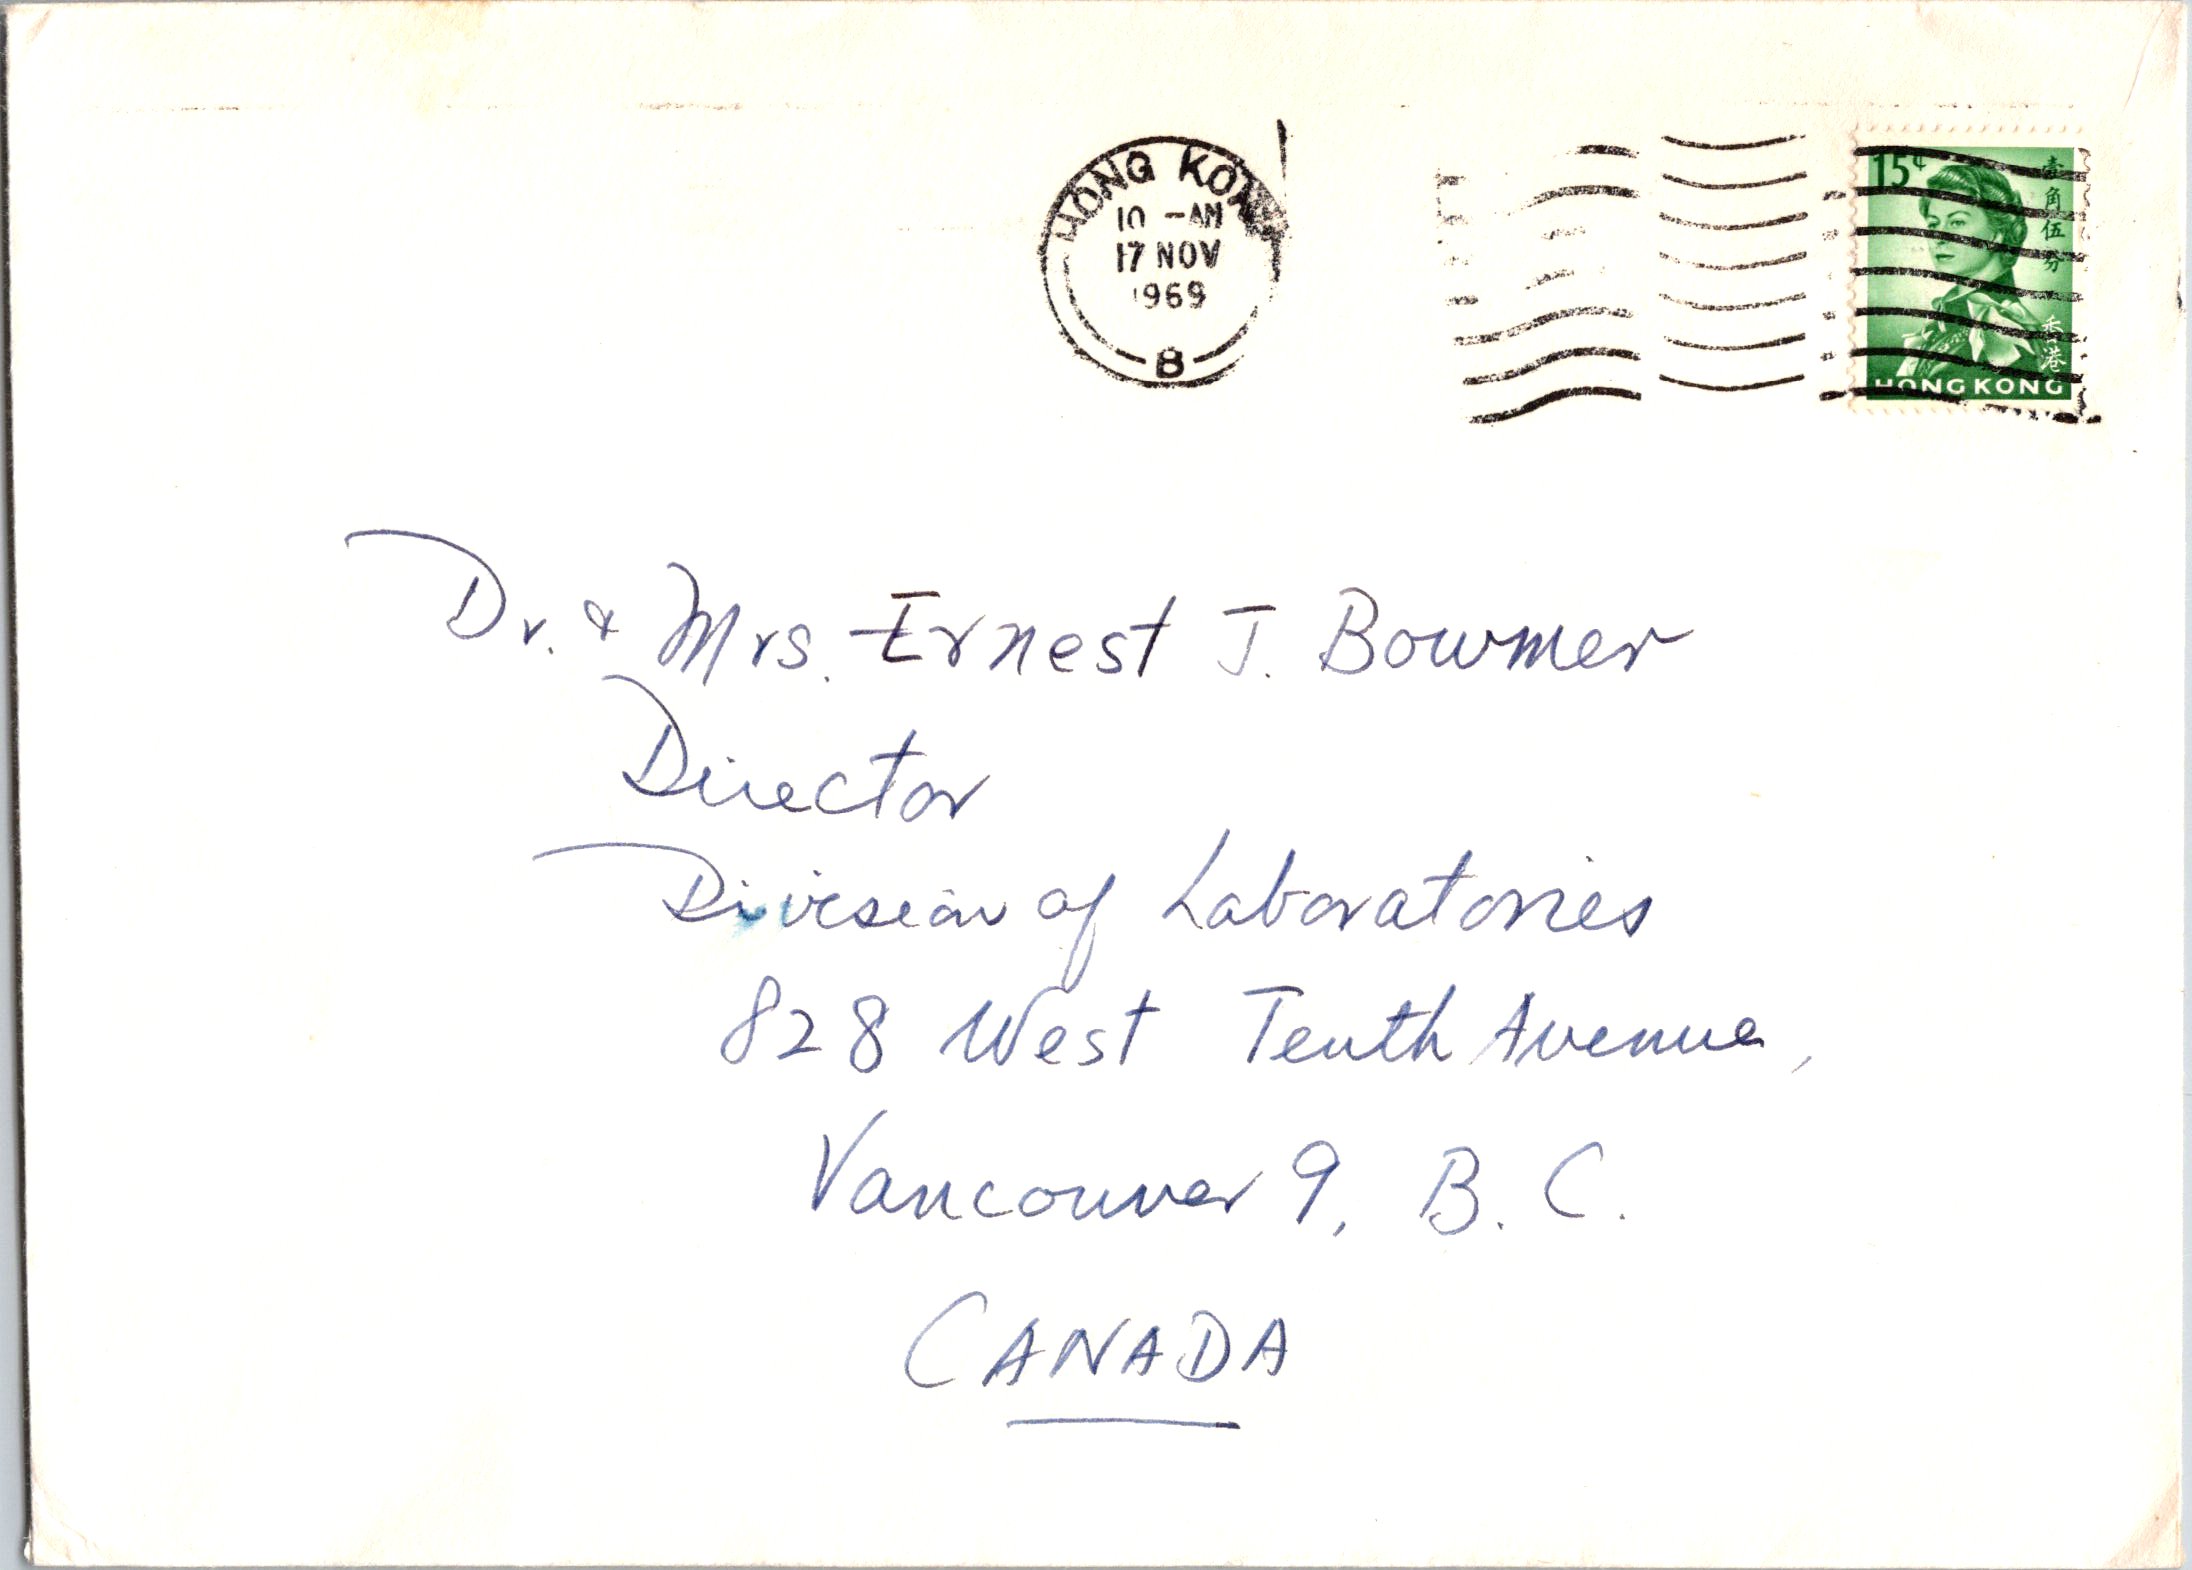 HONG KONG
10 - AM
17 NOV
1969
B
15¢
壹角伍分
香港
HONG KONG
Dr. & Mrs. Ernest J. Bowmer
Director
Division of Laboratories
828 West Tenth Avenue,
Vancouver 9, B. C.
CANADA